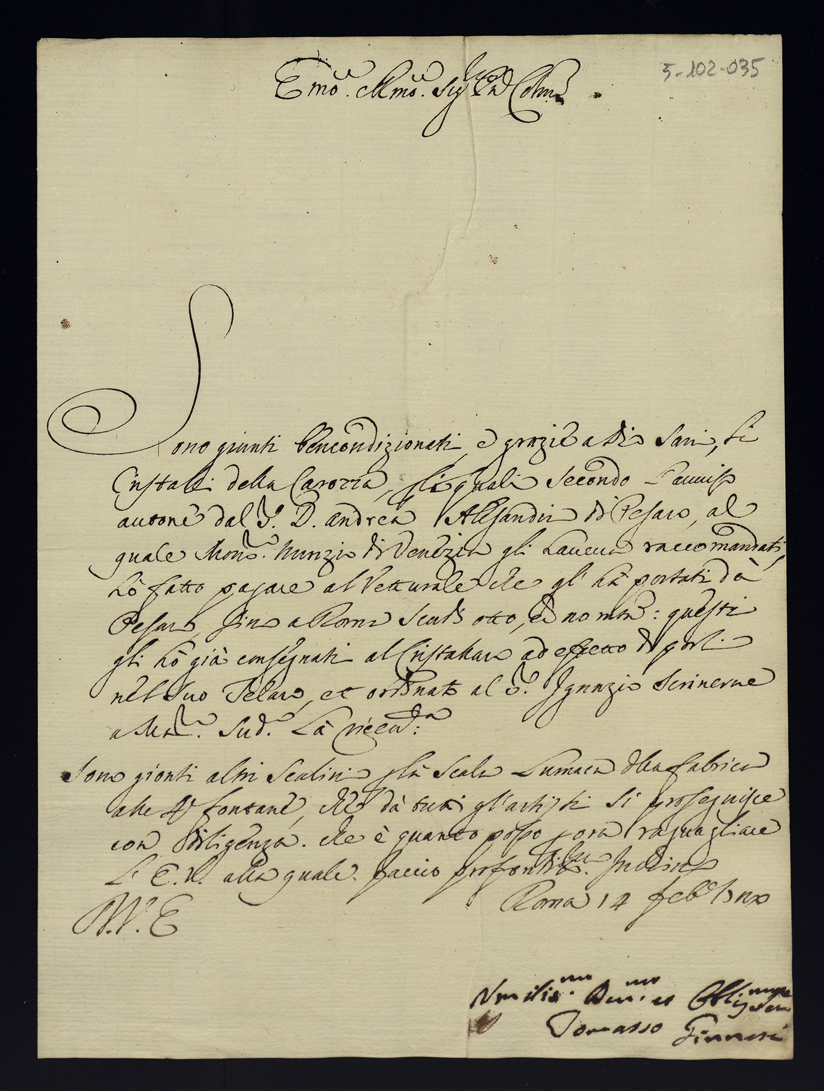 5-102-035
Emo. e Rmo. Sig. Pad. Colmo.
Sono giunti bencondizionati, e grazie a Dio sani, li
Cristalli della Carozza, gli quali secondo l'auuiso
autone dal S. D. Andrea Alesandri di Pesaro, al
quale Mons. Nunzio di Venezia gli haueua raccomandati,
hò fatto pagare al Vetturale che gl'hà portati dà
Pesaro fino a Roma Scudi otto, e : questi
gli hò già consegnati al Cristallaro ad effetto di porli
nel suo Telaro, et ordinato al S. Ignazio Scriuerne
a Mon. Sud.
Sono gionti altri Scalini p la Scala Lumaca della fabrica
alle 4 fontane, che dà tutti gl'artisti si proseguisce
con diligenza. che è quanto posso p ora raguagliare
l'E. V. alla quale faccio profondissa.
Roma 14 feb.
D. V. E
Vmiliss.mo Deu.mo et Obligmo
Tomasso